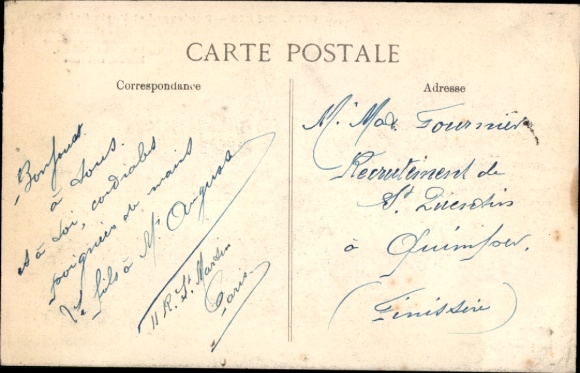 CARTE POSTALE
Correspondance
Bonjour
à tous
et à toi, cordiales
poignées de mains
fils à Mr
11 R. St Martin
Paris
Adresse
Mr Mad Fournier
Recrutement de
St Quentin
à Quimper
(Finistère)